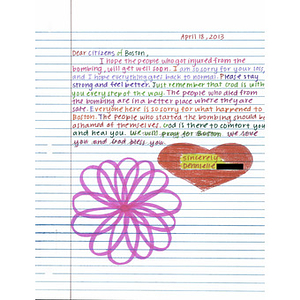 April 18, 2013
Dear citizens of Boston,
I hope the people who got injured from the
bombing, will get well soon. I am so sorry for your loss,
and I hope everything gets back to normal. Please stay
strong and feel better. Just remember that God is with
you every step of the way. The people who died from
the bombing are in a better place where they are
safe. Everyone here is so sorry for what happened to
Boston. The people who started the bombing should be
ashamed of themselves. God is there to comfort you
and heal you. We will pray for Boston. We love
you and God bless you.
Sincerely,
Dannielle